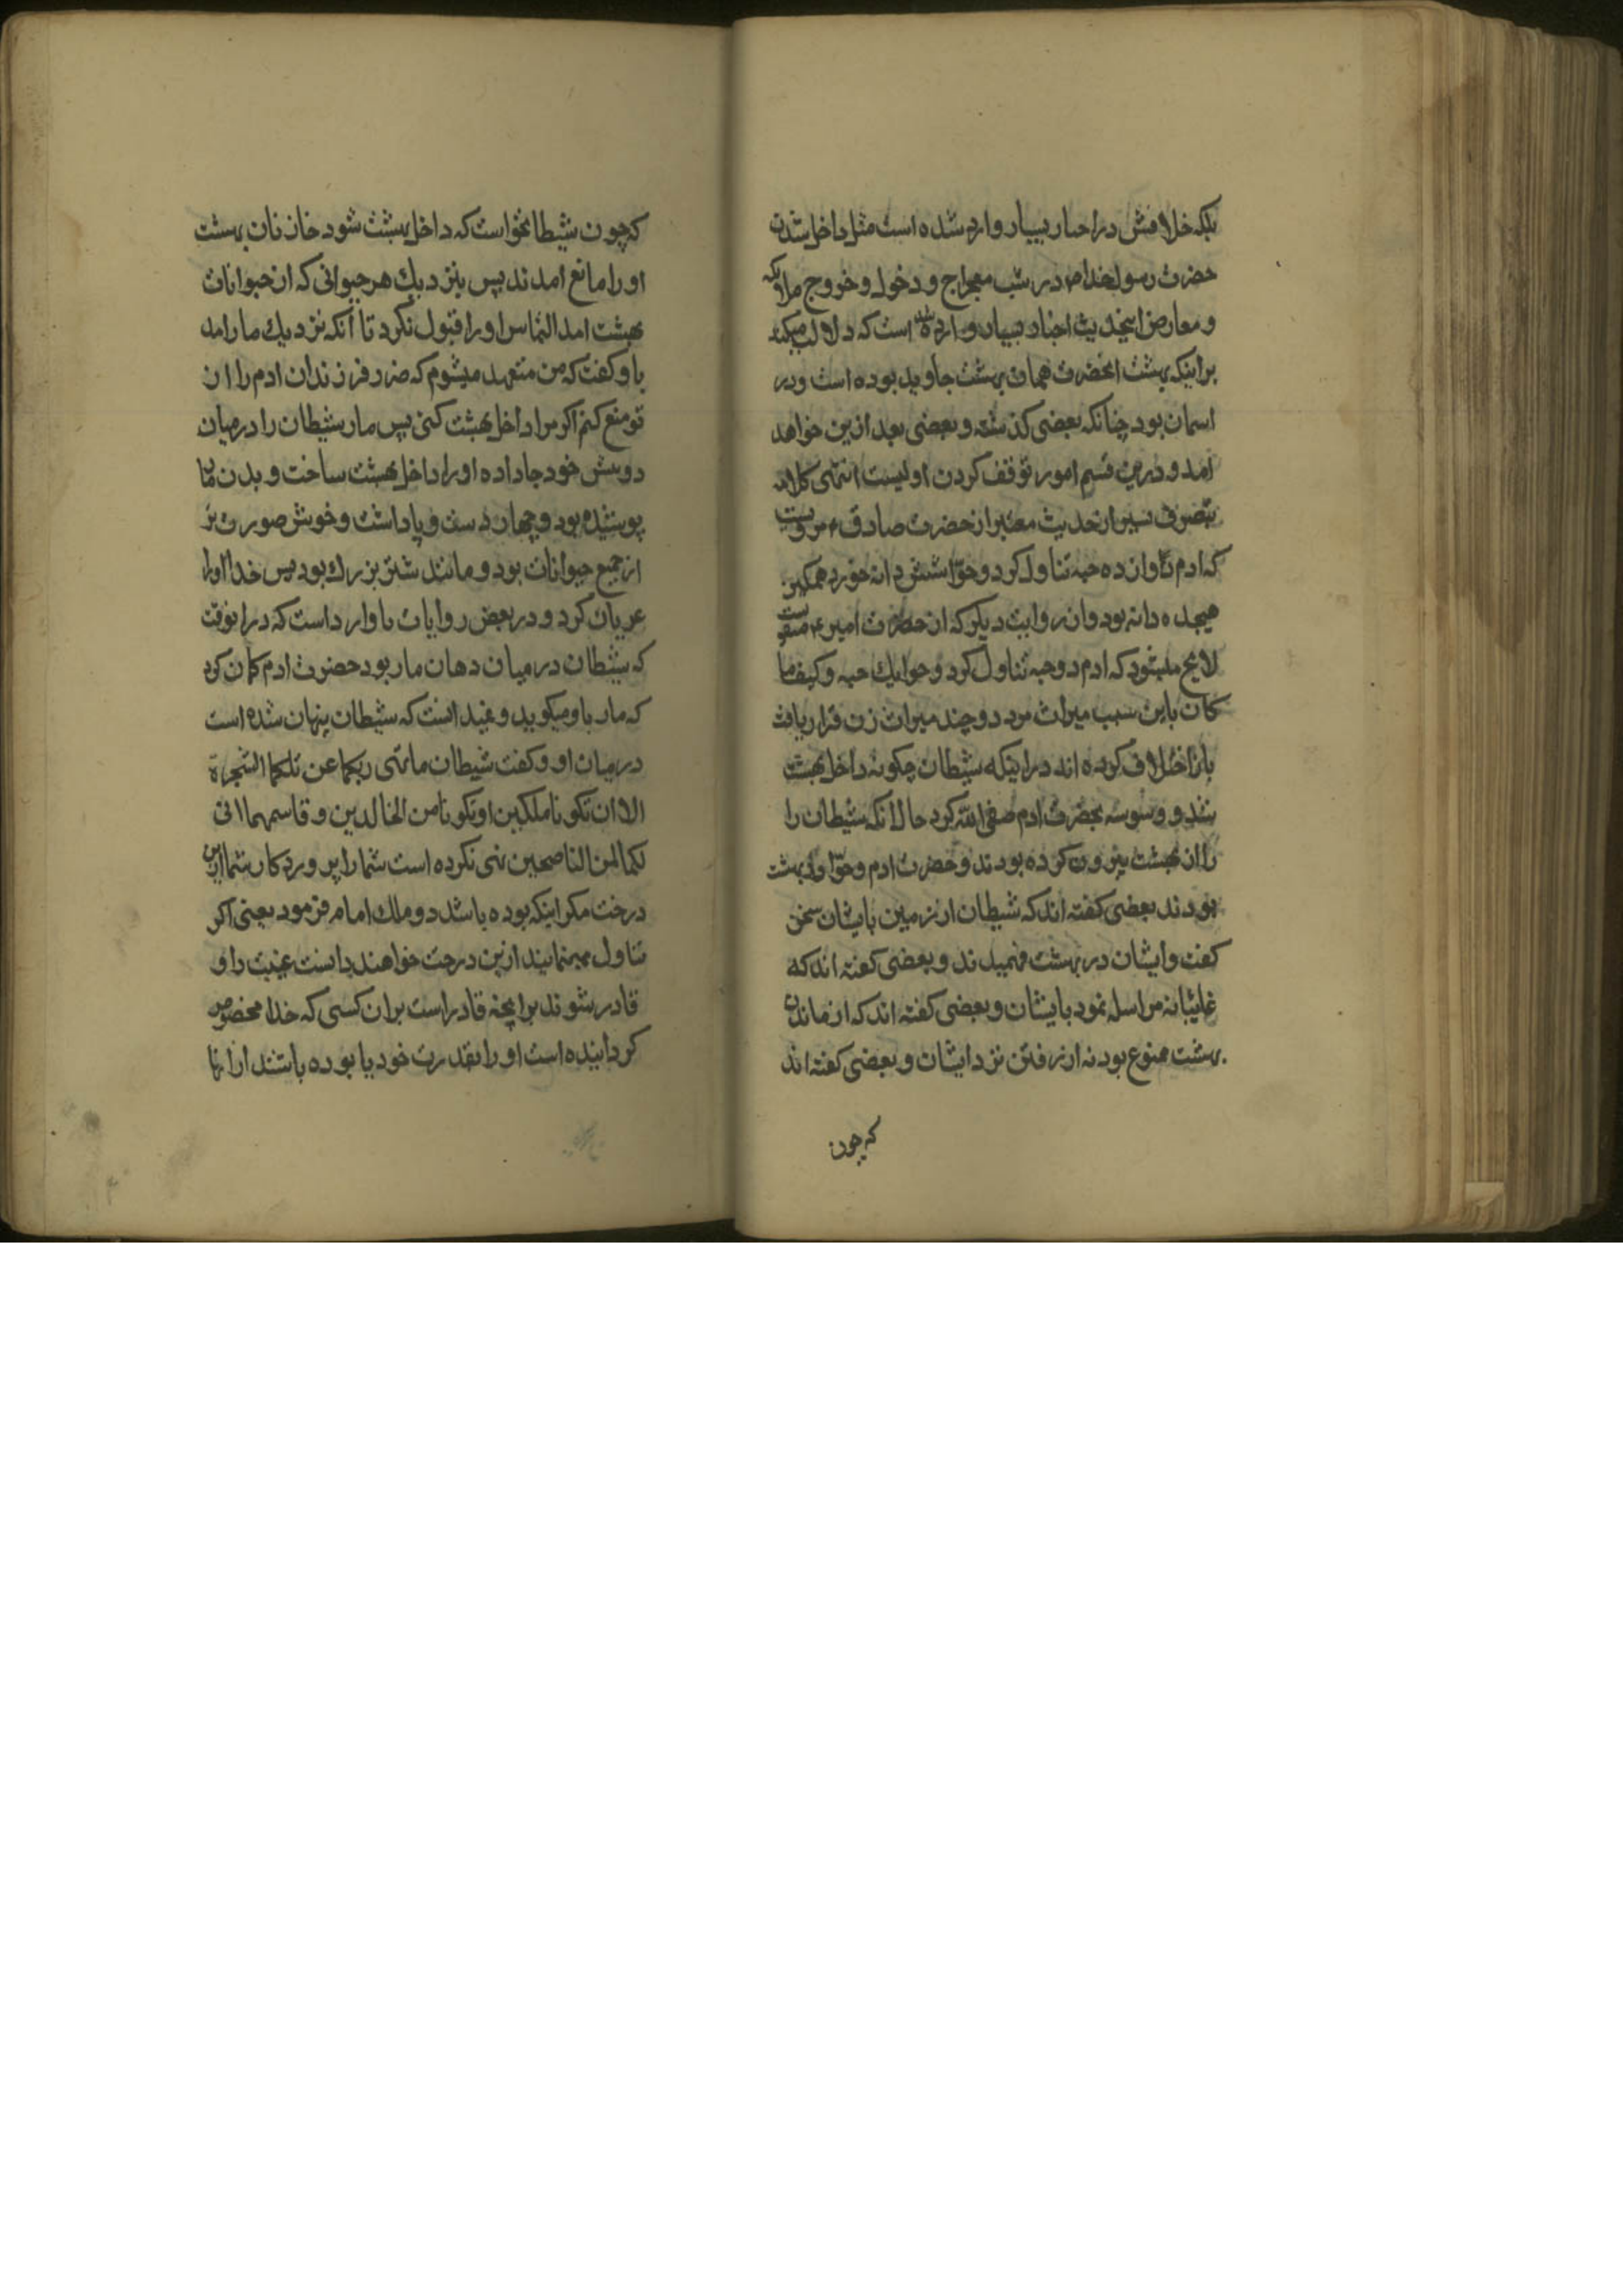 بلکه خلافش در اخبار بسیار وارد شده است مثل داخل شدن
حضرت رسول خدا ص در شب معراج و دخول و خروج ملائکه
و معارض اینحدیث اخبار بسیار وارد شده است که دلالت میکند
بر اینکه بهشت انحضرت همان بهشت جاوید بوده است و در
اسمان بود چنانکه بعضی کذشته و بعضی بعد ازین خواهد
امد و درین قسم امور توقف کردن اولیست انتهی کلامه
بتصرف یسیر از حدیث معتبر از حضرت صادق ع مرویست
که ادم ع از ان ده حبه تناول کرد و حوّا شش دانه خورد همکین
هیجده دانه بود و از روایت دیکر که از حضرت امیر ع منقولست
لایح میشود که ادم دو حبه تناول کرد و حوا یك حبه و کیفما
کان باین سبب میراث مرد دو چند میراث زن قرار یافت
باز اختلاف کرده اند در اینکه شیطان چکونه داخل بهشت
شد و وسوسه بحضرت ادم صفی الله کرد حال آنکه شیطان را
را از بهشت بیرون کرده بودند و حضرت ادم و حوّا در بهشت
بودند بعضی کفته اند که شیطان از زمین بایشان سخن
کفت و ایشان در بهشت فهمیدند و بعضی کفته اند که
غایبانه مراسله نمود بایشان و بعضی کفته اند که از ماندن
بهشت ممنوع بود نه از رفتن نزد ایشان و بعضی کفته اند
که چون
که چون شیطان خواست که داخل بهشت شود خازنان بهشت
او را مانع امدند پس بنزدیك هر حیوانی که از حیوانات
بهشت امد التماس او را قبول نکرد تا آنکه نزدیك مار امد
باو کفت که من متعهد میشوم که ضرر فرزندان ادم را از
تو منع کنم اکر مرا داخل بهشت کنی پس مار شیطان را در میان
دو نیش خود جا داده او را داخل بهشت ساخت و بدن مار
پوشیده بود و چهار دست و پا داشت و خوش صورت تر
از جمیع حیوانات بود و مانند شتر بزرك بود پس خدا او را
عریان کرد و در بعض روایات ما وارد است که در انوقت
که شیطان در میان دهان مار بود حضرت ادم کمان کرد
که مار باو میکوید و نمیدانست که شیطان پنهان شده است
در میان او و کفت شیطان ما نهی ربکما عن تلکما الشجرة
الا ان تکونا ملکین او تکونا من الخالدین و قاسمهما انی
لکما لمن الناصحین نهی نکرده است شما را پروردکار شما ازین
درخت مکر اینکه بوده باشد دو ملك امام فرمود یعنی اکر
تناول مینمایید ازین درخت خواهند دانست غیبت را و
قادر شوند برانچه قادر است بران کسی که خدا مخصوص
کردانیده است او را بقدرت خود یا بوده باشند از انها